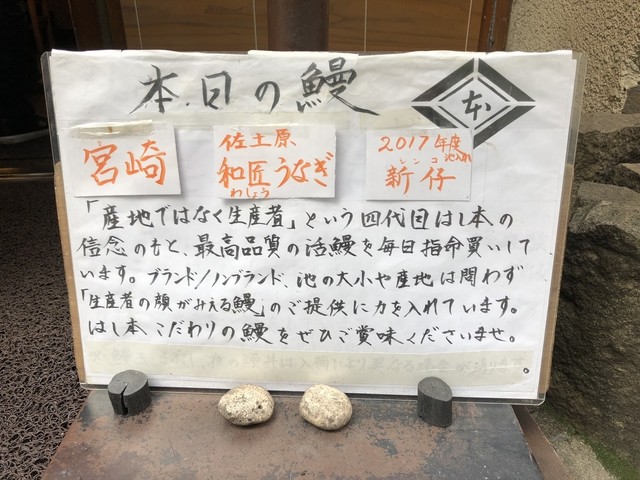 本日の鰻
本
宮崎
佐土原
和匠うなぎ
わしょう
2017年度
池入れ
シンコ
新仔
「産地ではなく生産者」という四代目はし本の
信念のもと、最高品質の活鰻を毎日指命買いして
います。ブランド/ノンブランド、池の大小や産地は問わず
「生産者の顔がみえる鰻」のご提供に力を入れています。
はし本こだわりの鰻をぜひご賞味くださいませ。